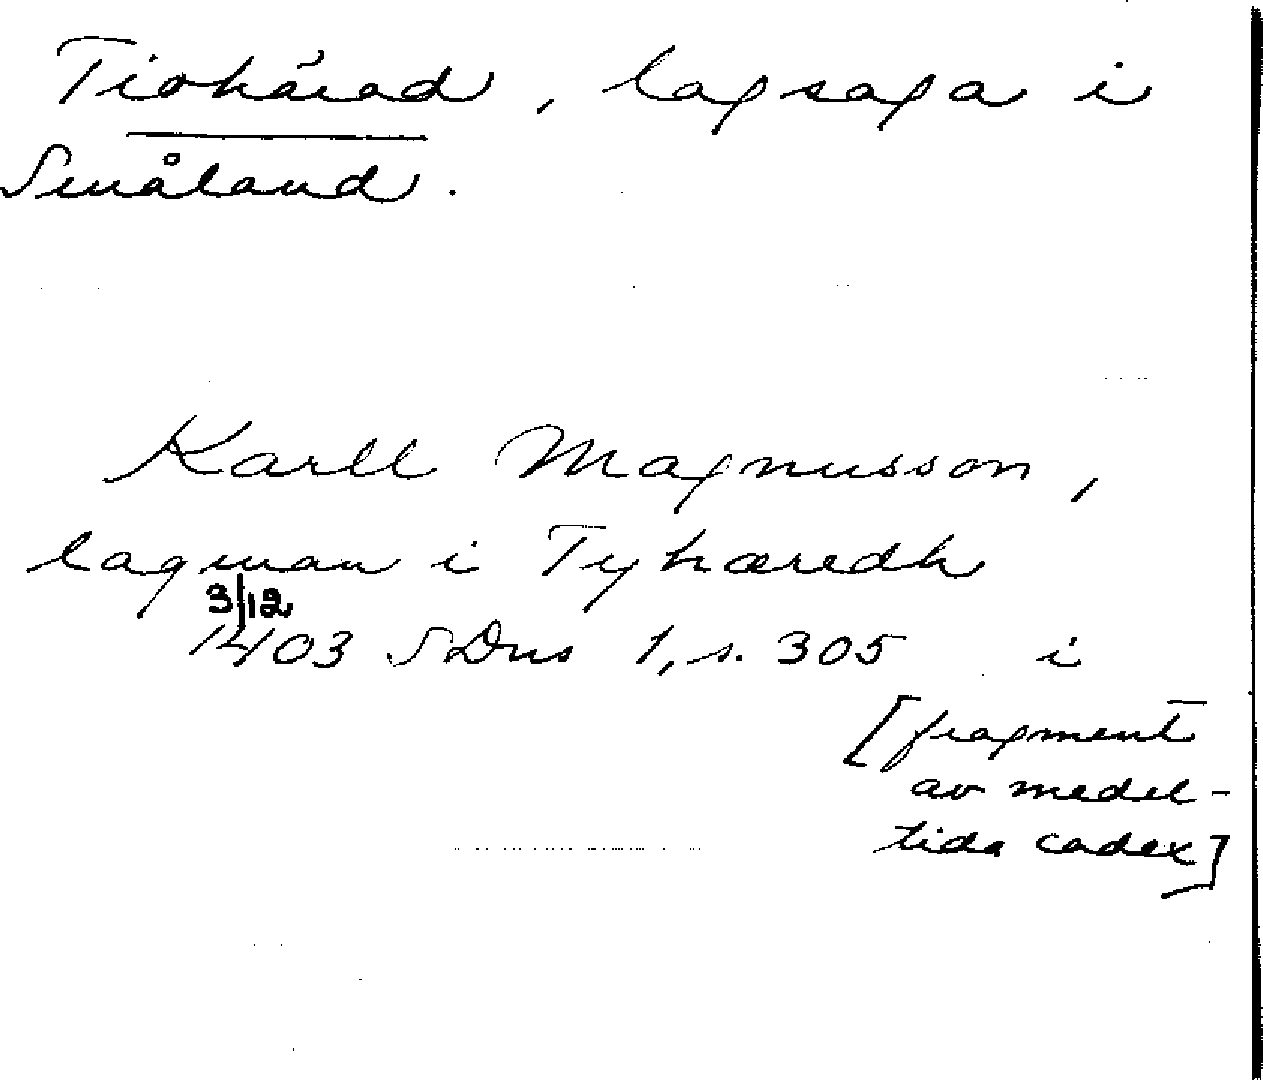 Tiohärad, lagsaga i
Småland.
Karll Magnusson,
lagman i Tyhæredh
3/12
1403 SDns 1, s. 305 i
[fragment
av medel-
tida codex]